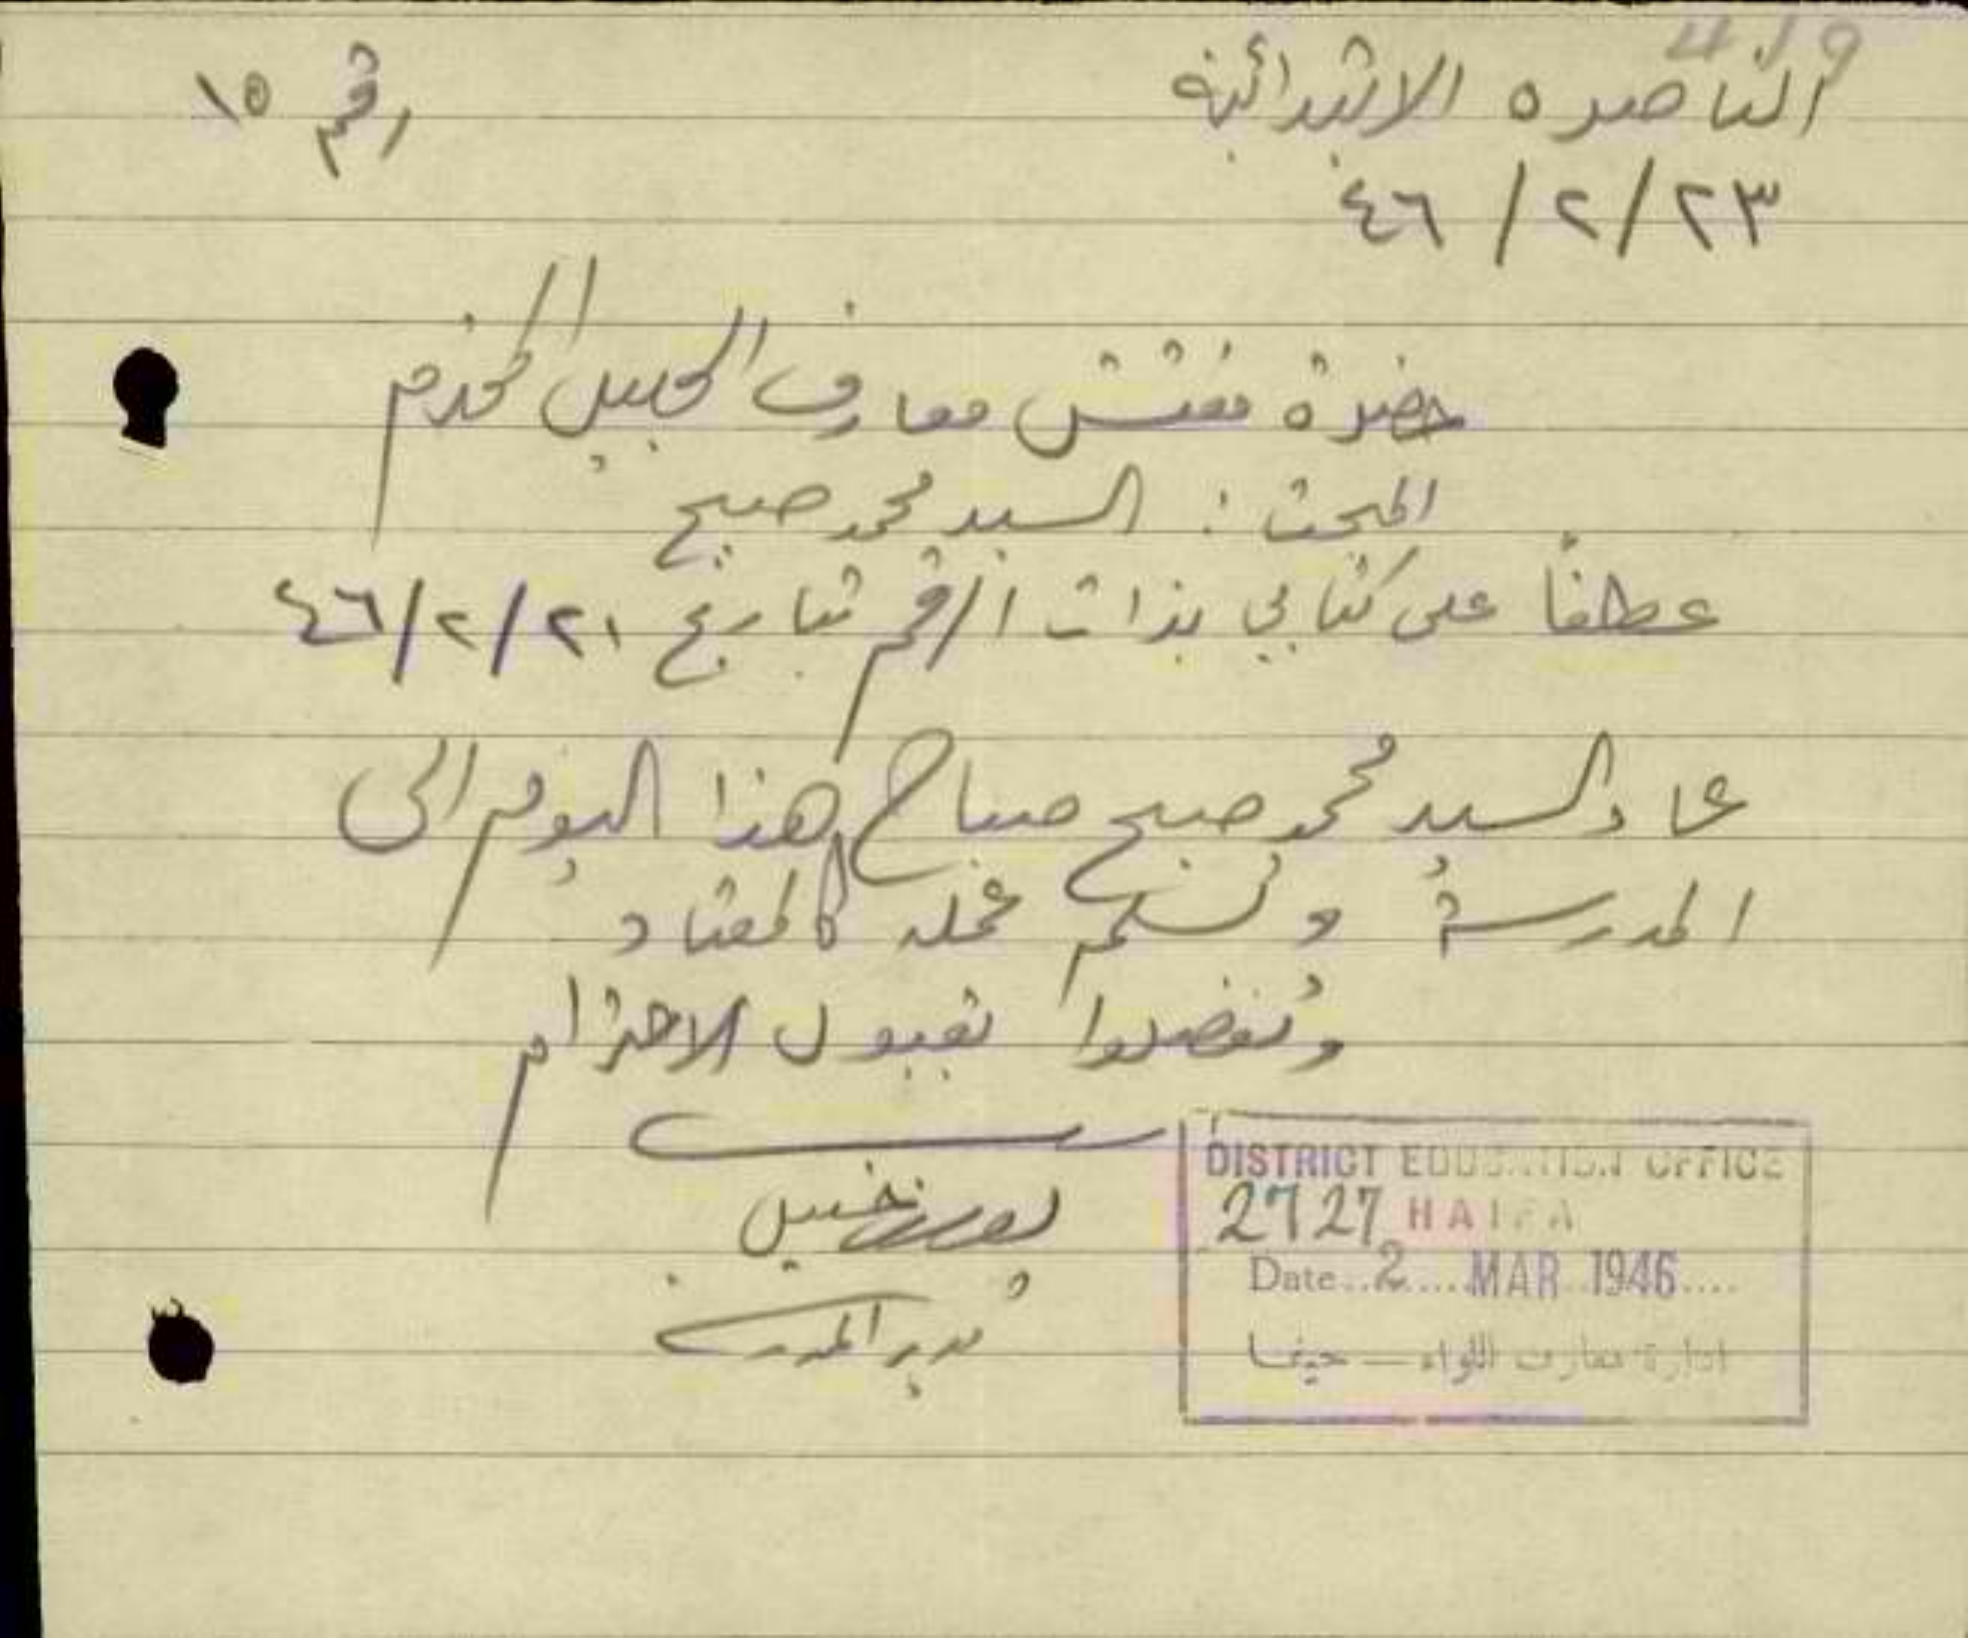 419
الناصره الابتدائية
رقم ١٥
٤٦/٢/٢٣
حضرة مفتش معارف الجليل المحترم
المبحث : السيد محمد صبح
عطفاً على كتابي بذات الرقم تاريخ ٤٦/٢/٢١
عاد السيد محمد صبح صباح هذا اليوم الى
المدرسة وتسلم عمله كالمعتاد
وتفضلوا بقبول الاحترام
خليل
مدير المدرسة
DISTRICT EDUCATION OFFICE
2727 HAIFA
Date..2....MAR 1946....
ادارة معارف اللواء — حيفا